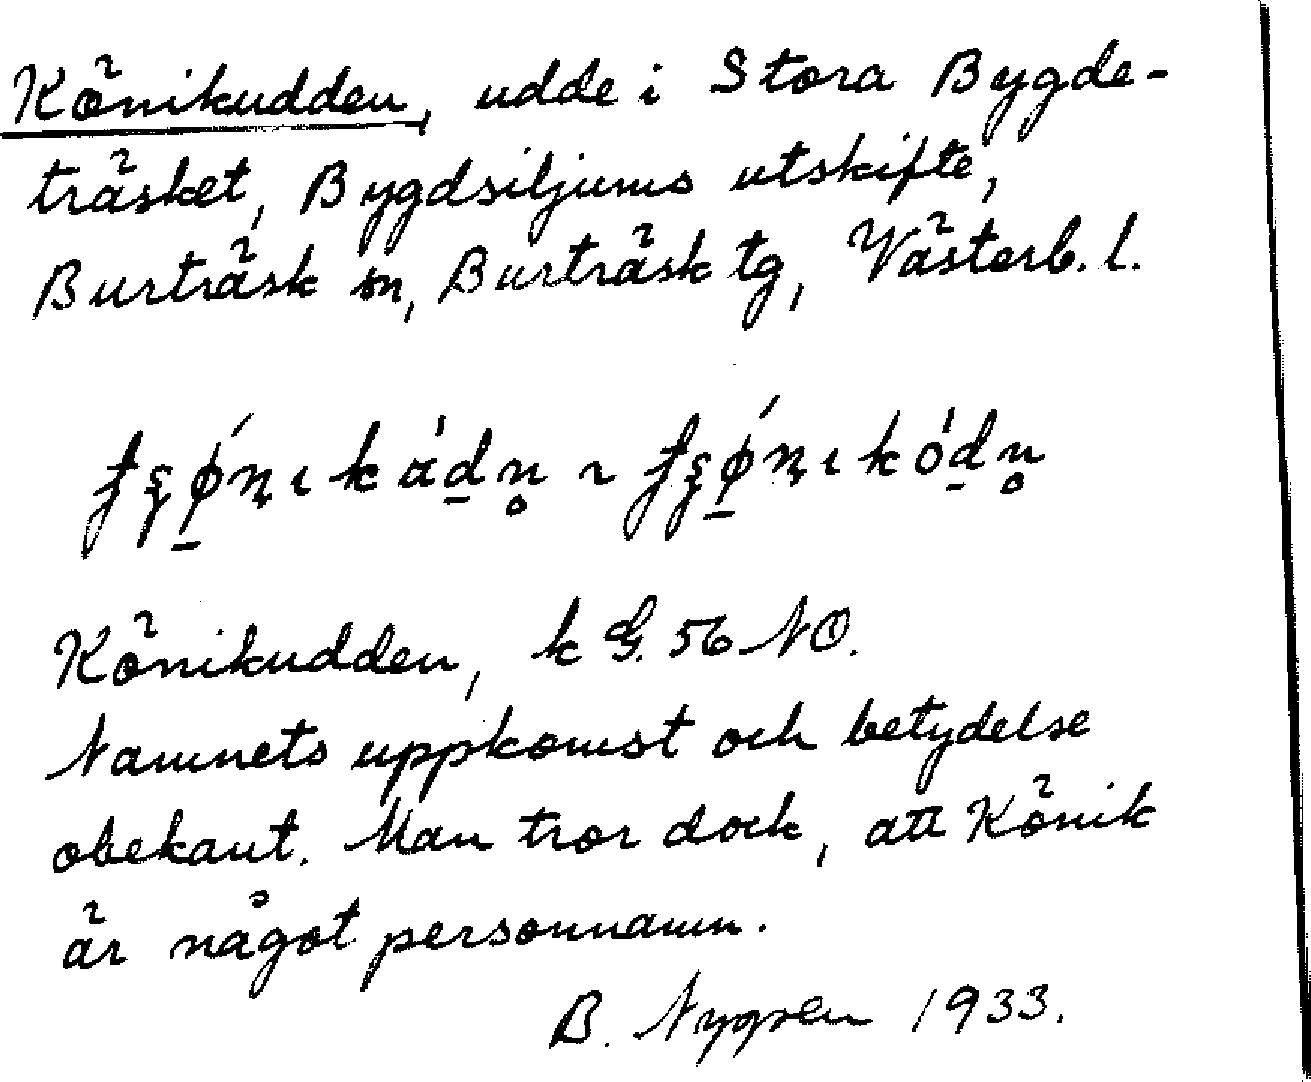 Könikudden, udde i Stora Bygde-
träsket, Bygdsiljums utskifte,
Burträsk sn, Burträsk tg, Västerb. l.
Könikudden, k G. 56 NO.
Namnets uppkomst och betydelse
obekant. Man tror dock, att Könik
är något personnamn.
B. Nygren 1933.